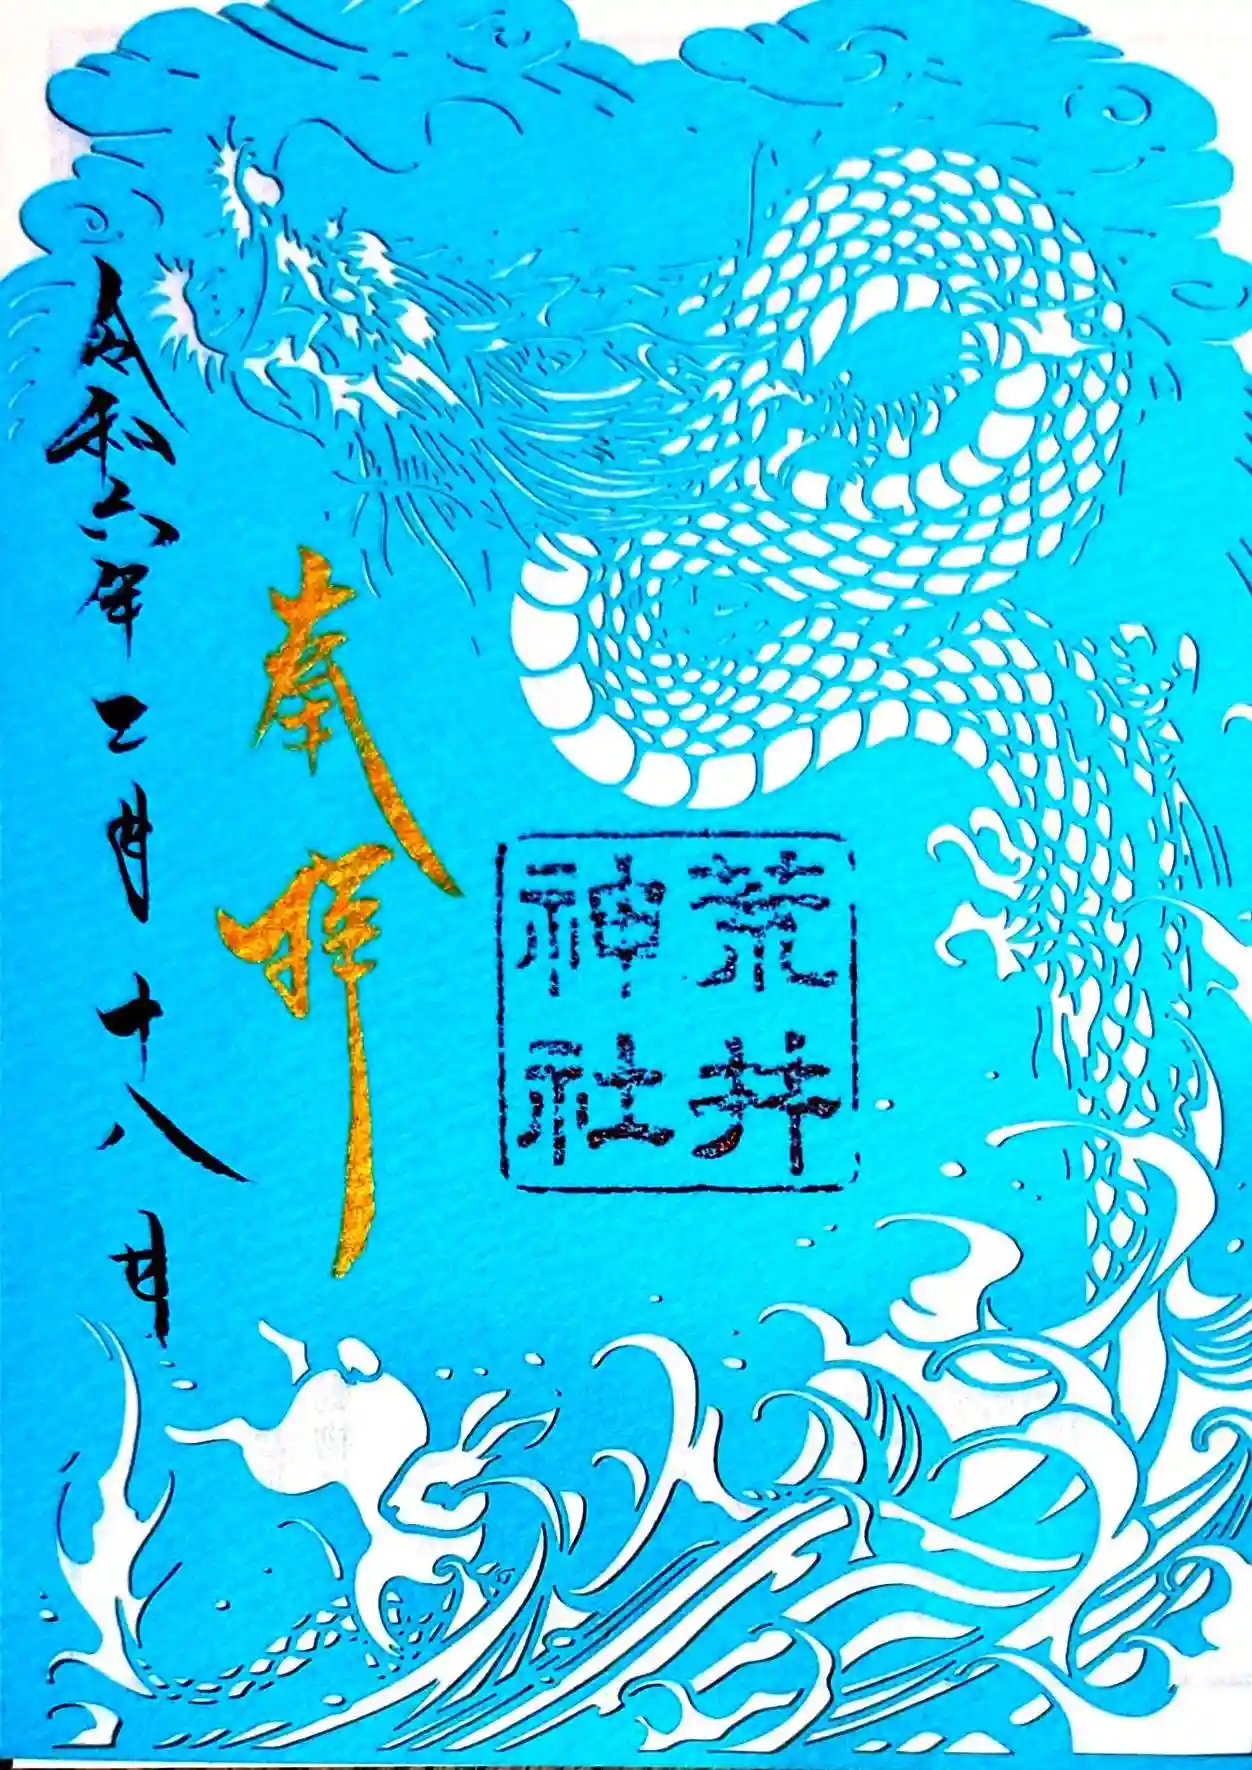 荒井
神社
奉拝
令和六年二月十八日